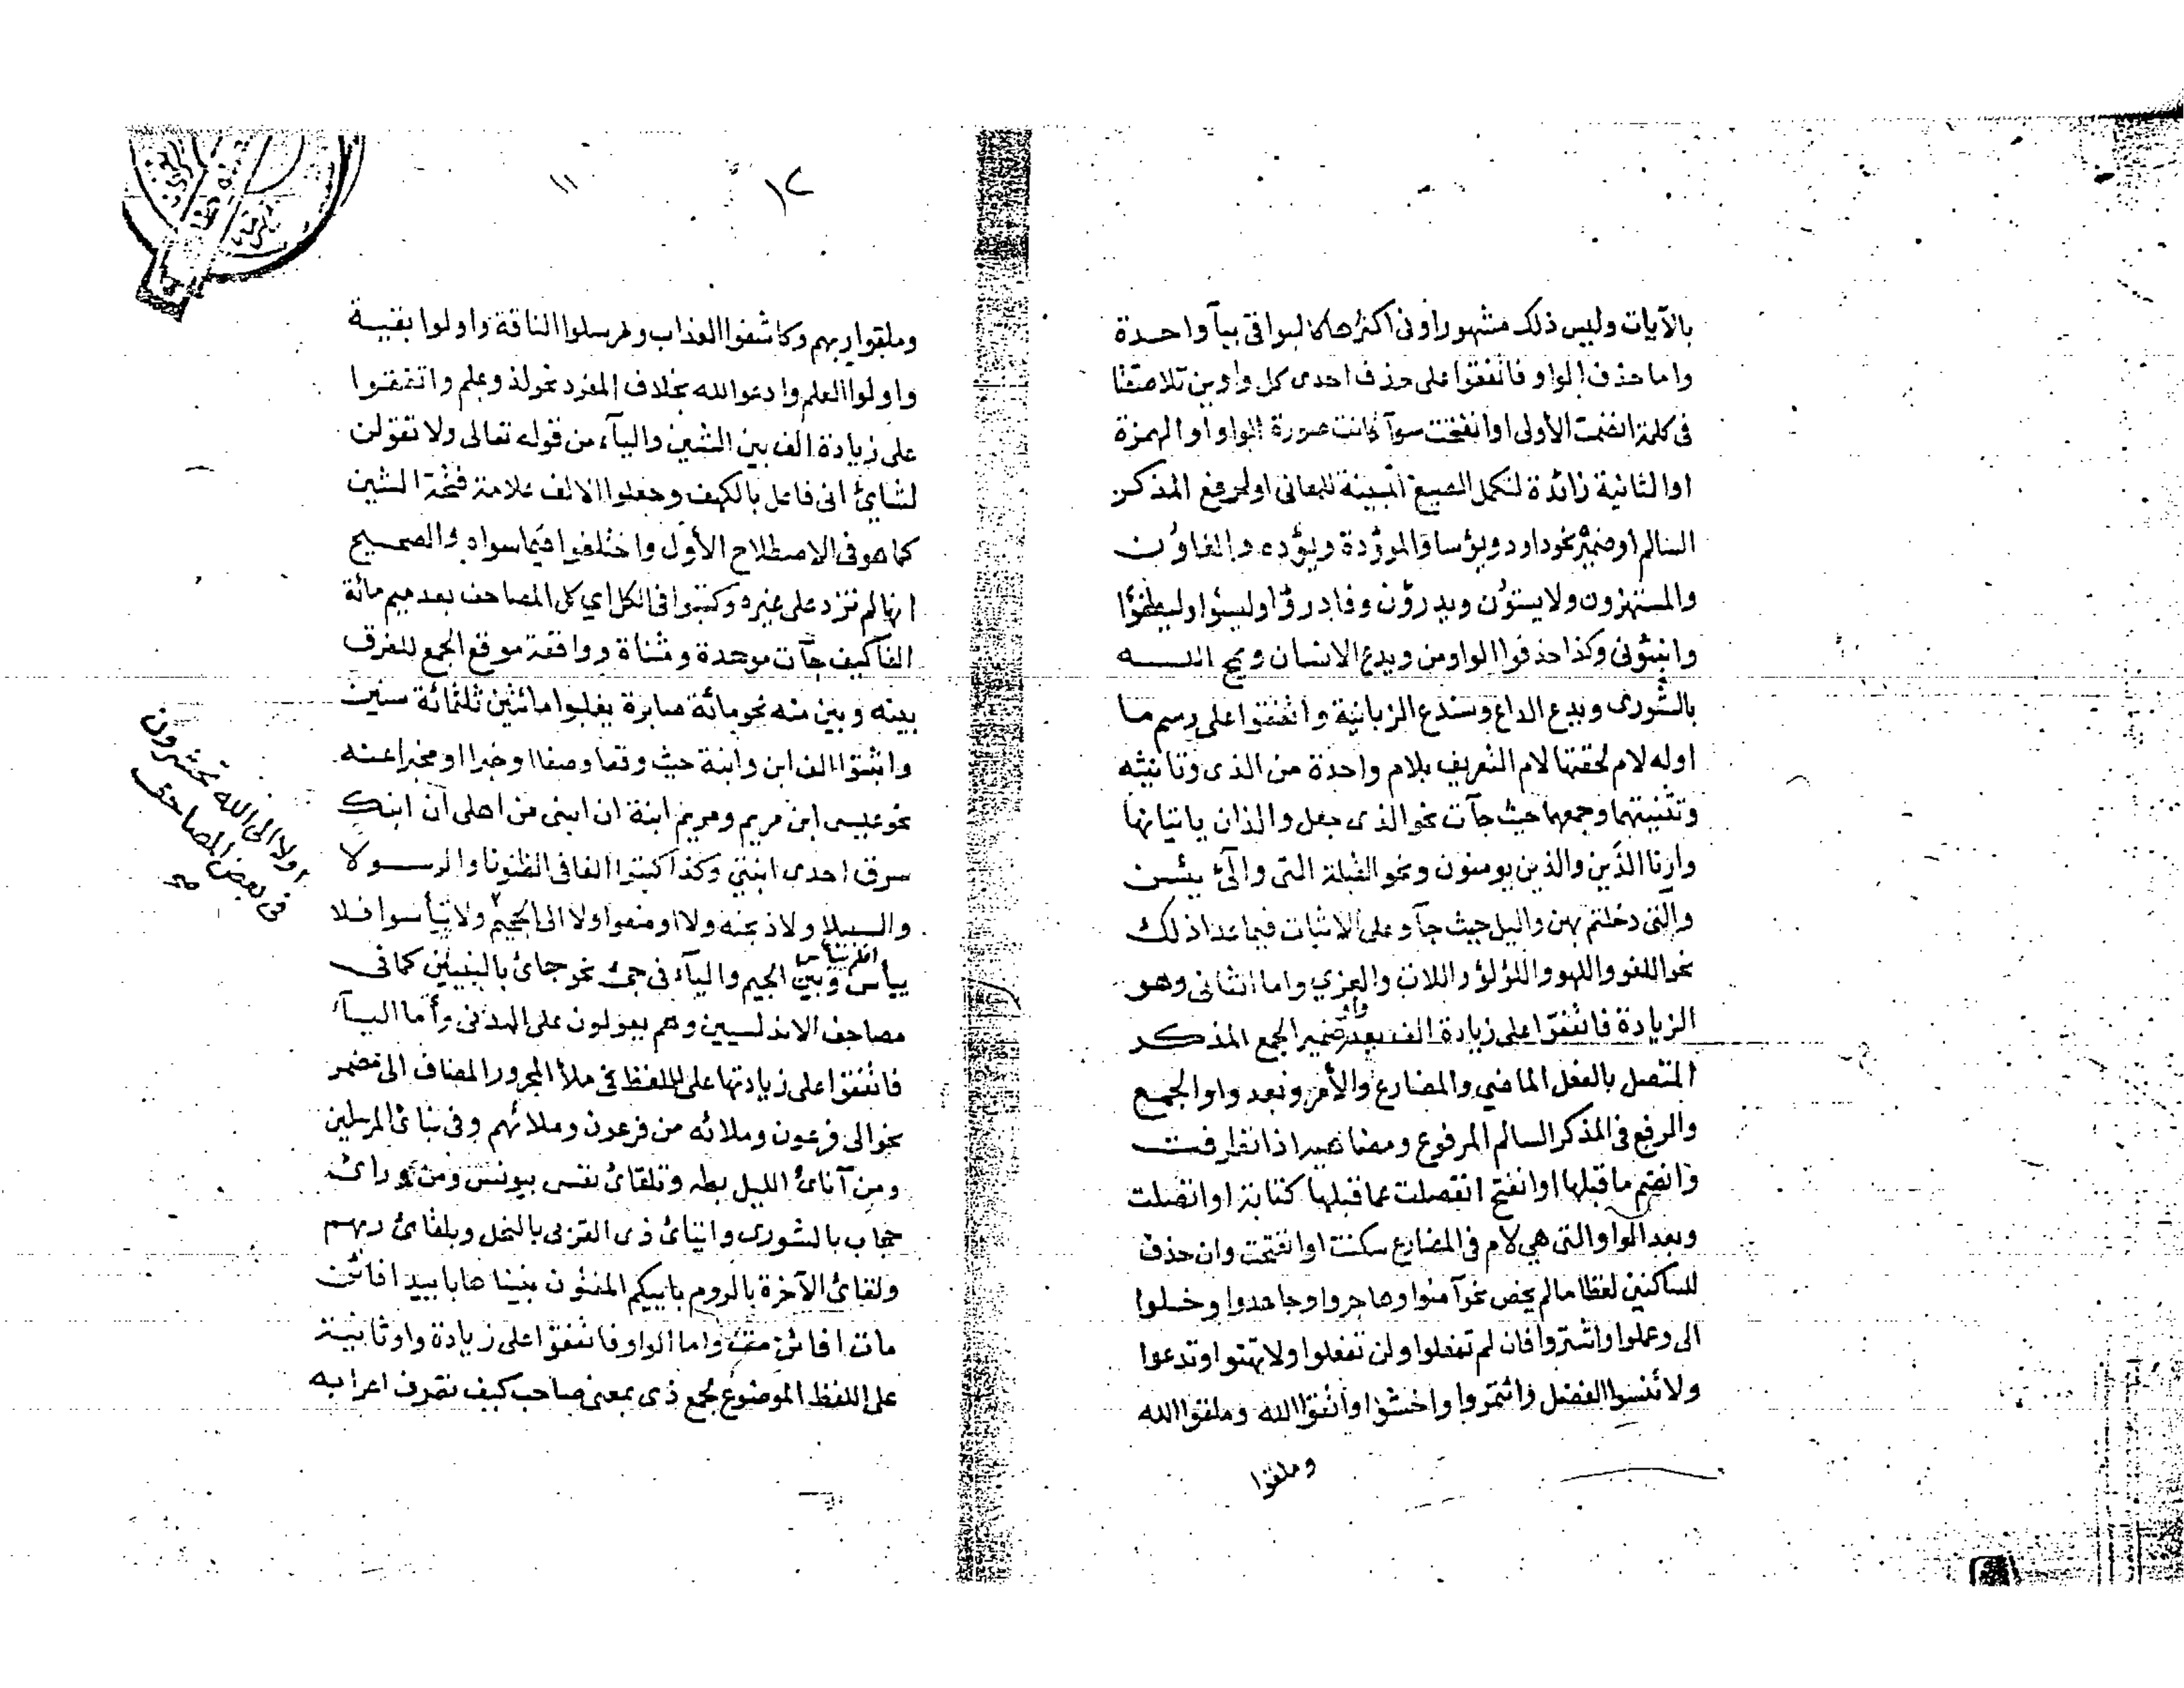 بالآيات وليس ذلك مشهورا وفي اكثرها كالبواقي بيآ واحدة
واما حذف الواو فاتفقوا على حذف احدى كل واوين تلاصقتا
في كلمة انضمت الأولى او انفتحت سوآ كانت صورة الواو او الهمزة
او الثانية زائدة لتكمل الصيغ المبينة للمعانى او لرفع المذكر
السالم او ضميره نحو داود ويؤسا والموؤدة ويؤده والغاون
والمستهزون ولا يستون ويدرؤن وفادرؤا وليسئوا وليطفؤا
وانبئونى وكذا حذفوا الواو من ويدع الانسان ويمح اللـــه
بالشورى ويدع الداع وسندع الزبانية واتفقوا على رسم ما
اوله لام لحقتها لام التعريف بلام واحدة من الذى وتأنيثه
وتثنيتهما وجمعها حيث جآت نحو الذى جعل والذان ياتيانها
وارنا الذين والذين يومنون ونحو القبلة التى والآئ يئسن
والتى دخلتم بهن واليل حيث جآ وعلى الاثبات فيما عدا ذلك
نحو اللغو واللهو واللؤلؤ واللات والعزي واما الثانى وهو
الزيادة فاتفقوا على زيادة الف بعد واو ضمير الجمع المذكر
المتصل بالفعل الماضي والمضارع والأمر وبعد واو الجمع
والرفع في المذكر السالم المرفوع ومضاهيه اذا تطرفت
وانضم ما قبلها او انفتح انفصلت عما قبلها كتابة او اتصلت
وبعد الواو التى هي لام في المضارع سكنت او انفتحت وان حذف
للساكنين لفظا ما لم يخص نحو آمنوا وهاجروا وجاهدوا وخلوا
الى وعملوا واشتروا فان لم تفعلوا ولن تفعلوا ولا تهنوا وتدعوا
ولا تنسوا الفضل وائتمروا واخشوا واتقوا الله وملقوا الله
وملقوا
١١
١٢
وملقوا ربهم وكاشفوا العذاب ومرسلوا الناقة واولوا بقيـة
واولوا العلم وادعوا الله بخلاف المفرد نحو لذو وعلم واتفقوا
على زيادة الف بين الشين واليآء من قوله تعالى ولا تقولن
لشائ انى فاعل بالكهف وجعلوا الالف علامة فتحة الشين
كما هو في الاصطلاح الأول واختلفوا فيما سواه والصحيح
انها لم تزد على غيره وكتبوا في الكل اي كل المصاحف بعد ميم مائة
الفا كيف جآت موحدة ومثناة وواقعة موقع الجمع للفرق
بينه وبين منه نحو مائة صابرة يغلبوا مائتين ثلثمائة سنين
واثبتوا الف ابن وابنة حيث وقعا وصفا او خبرا او مخبرا عنه
نحو عيسى ابن مريم ومريم ابنة ان ابنى من اهلى ان ابنك
سرق احدى ابنتي وكذا كتبوا الفا في الظنونا والرسولا
والسبيلا ولا اذبحنه ولا اوضعوا ولا الى الجحيم ولا تيأسوا فلا
افلم ييأس
ييأس وبين الجيم واليآء في جئ نحو جائ بالنبيين كما في
مصاحف الاندلسيين وهم يعولون على المدنى وأما اليـآء
فاتفقوا على زيادتها على اللفظ في ملأ المجرور المضاف الى مضمر
نحو الى فرعون وملائه من فرعون وملائهم وفي نبائ المرسلين
ومن آنائ الليل بطه وتلقائ نفسى بيونس ومن ورائ
حجاب بالشورى وايتائ ذى القربى بالنحل وبلقائ ربهم
ولقائ الآخرة بالروم باييكم المفتون بنيناها باييد افائن
مات افائن مت واما الواو فاتفقوا على زيادة واو ثانيـة
على اللفظ الموضوع لجمع ذى بمعنى صاحب كيف تصرف اعرابه
او لا الى الله تحشرون
في بعض المصاحف
صح